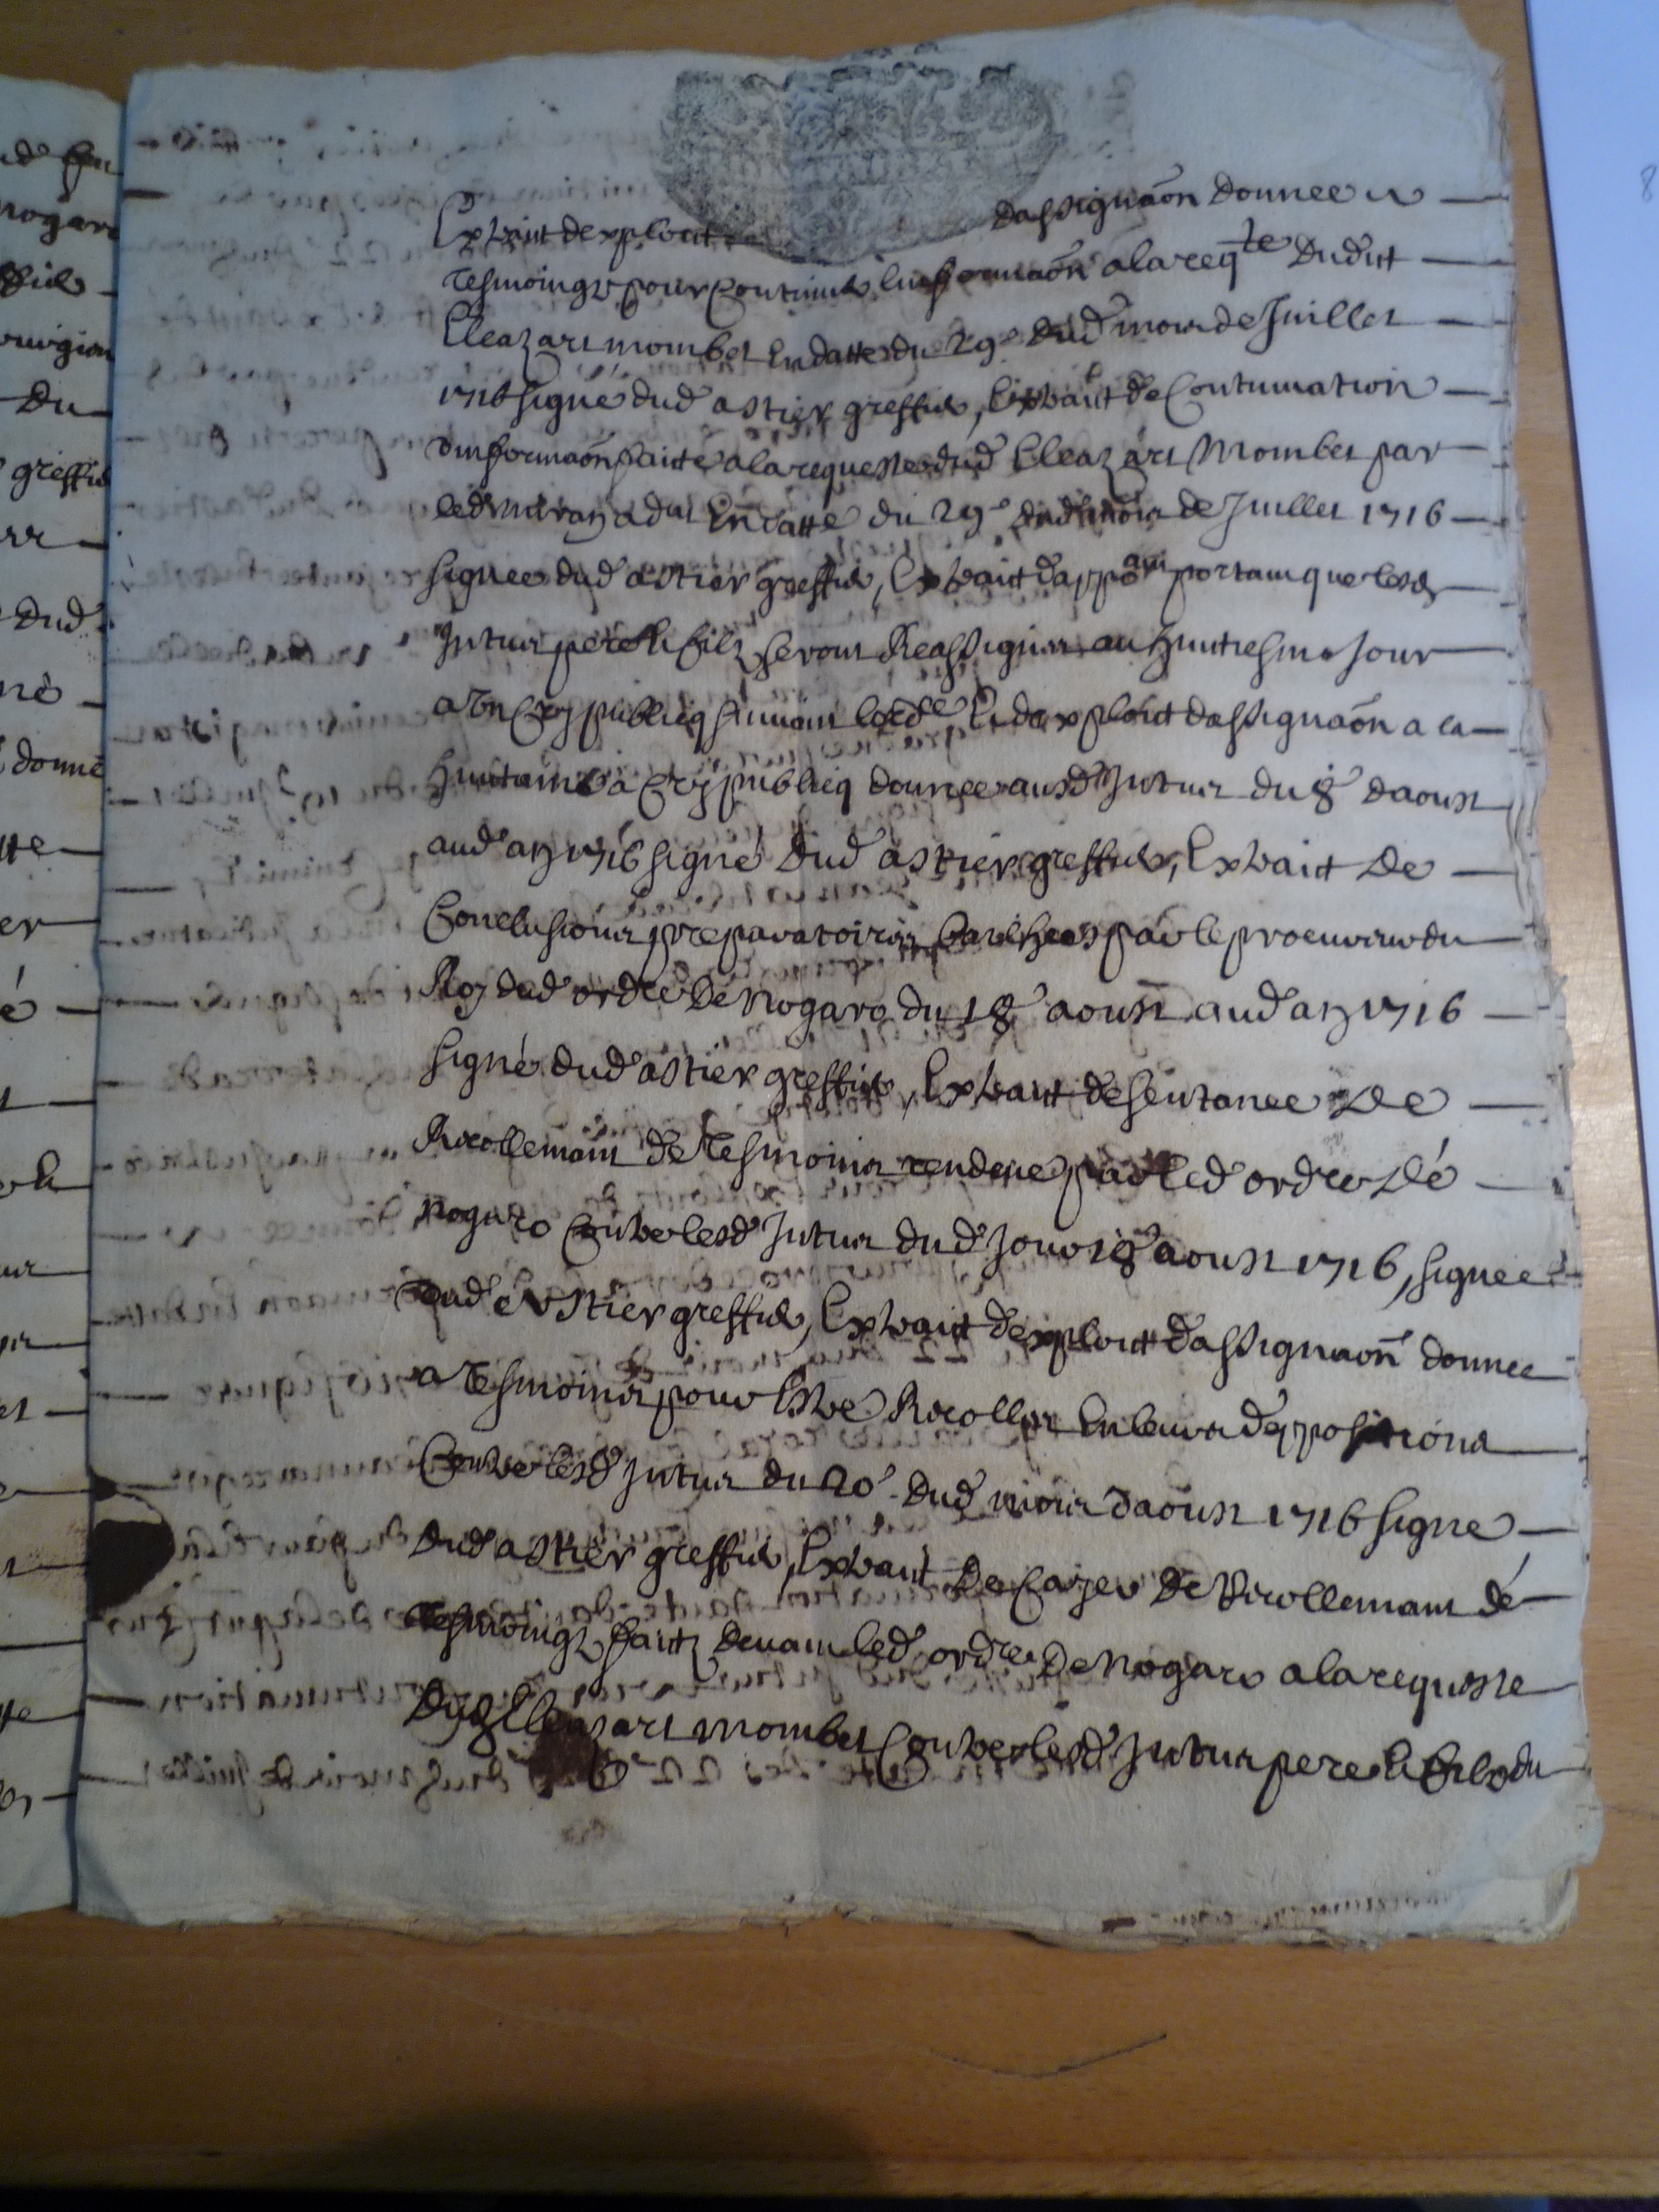 Extrait dexploit dassignaõn donnee a
tesmoings pour continuer linformaõn a la reqte dudit
Eleazart mombet En datte du 29e dud mois de Juillet
1716 signé dud astier greffier, Extrait de Continuation
dinformaõn faitte a la requeste dud Eleazart Mombet par
led En datte du 29e dud mois de Juillet 1716
signee dud astier greffier, Extrait dappoam portant que lesd
Jntrus pere et filz seront Reassignes au huitiesme Jour
a cry publicq suivant lord Et dexploit dassignaõn a la
huitaine a Cry publicq donnee ausd Jntrus du 8e daoust
aud an 1716 signé dud astier greffier, Extrait de
Conclusions preparatoires par le procureur du
Roy dud ordre de Nogaro du 18e aoust aud an 1716
signé dud astier greffier, Extrait de sentance de
Recollemant de tesmoins rendue par led ordre de
nogaro Contre lesd Jntrus dud Jour 18e aoust 1716, signee
dud Astier greffier, Extrait dexploit dassignaõn donnee
a tesmoins pour Estre Recolles En leurs depositions
Contre lesd Jntrus du 20e dud mois daoust 1716 signé
dud astier greffier, Extrait de Cayer de Recollemant de
tesmoings faitz devant led ordre de Nogaro a la requeste
dud Eleazart mombet Contre lesd Jntrus pere et filz du
nogaro
du
greffier
dud
donné